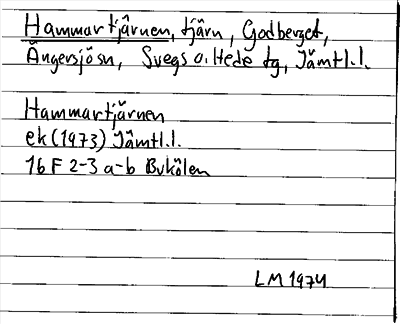 Hammartjärnen, tjärn, Godberget,
Ängersjösn, Svegs o. Hede tg, Jämtl.l.
Hammartjärnen
ek (1973) Jämtl.l.
16 F 2-3 a-b Bukölen
LM 1974